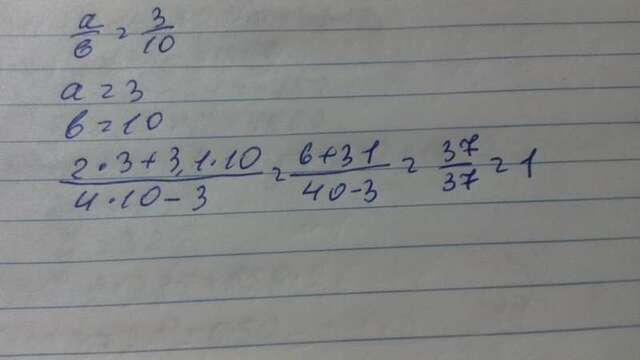 a/b = 3/10
a = 3
b = 10
(2·3+3,1·10)/(4·10-3) = (6+31)/(40-3) = 37/37 = 1